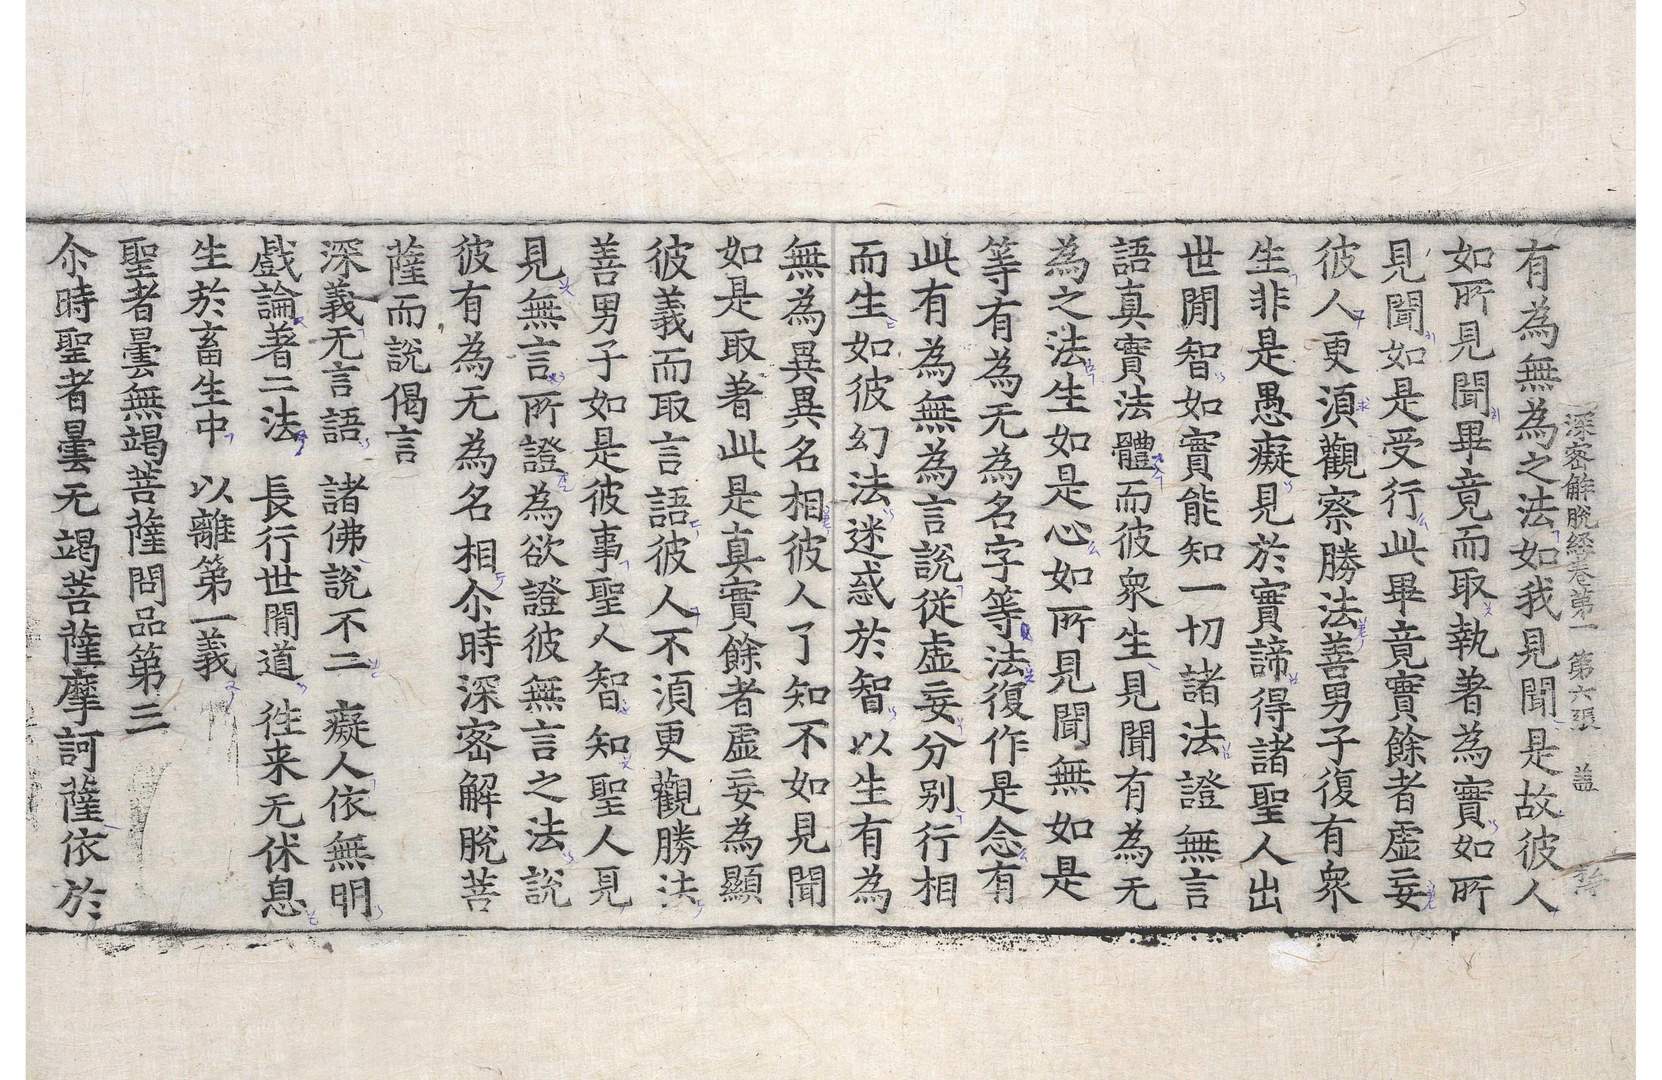 深密解脫經卷第一 第六張 盖
有為無為之法如我見聞是故彼人
如所見聞畢竟而取執著為實如所
見聞如是受行此畢竟實餘者虛妄
彼人更湏觀察勝法善男子復有衆
生非是愚癡見於實諦得諸聖人出
世閒智如實能知一切諸法證無言
語真實法體而彼衆生見聞有為无
為之法生如是心如所見聞無如是
等有為无為名字等法復作是念有
此有為無為言說從虛妄分別行相
而生如彼幻法迷惑於智以生有為
無為異異名相彼人了知不如見聞
如是取著此是真實餘者虛妄為顯
彼義而取言語彼人不湏更觀勝法
善男子如是彼事聖人智知聖人見
見無言所證為欲證彼無言之法說
彼有為无為名相尒時深密解脫菩
薩而說偈言
深義无言語 諸佛說不二 癡人依無明
戲論著二法 長行世閒道 徃来无休息
生於畜生中 以離第一義
聖者曇無竭菩薩問品第三
尒時聖者曇无竭菩薩摩訶薩依於